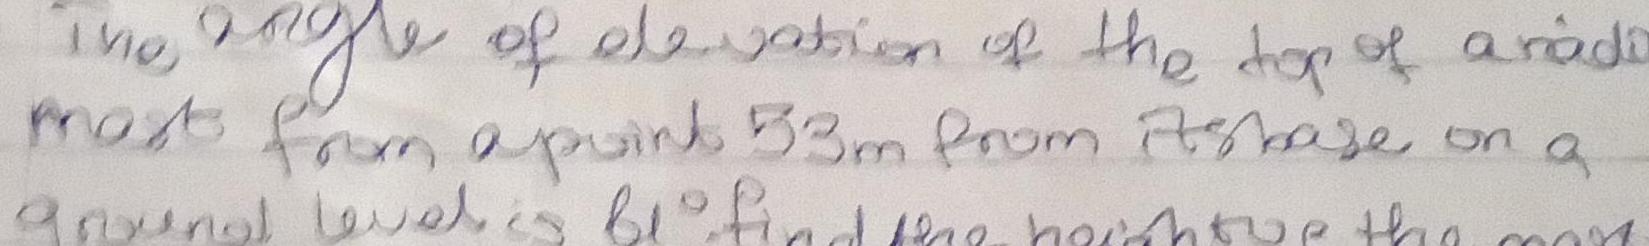 The angle of elevation of the top of a radio
mast from a point 53m from its base on a
ground level is 61° find the height of the mast